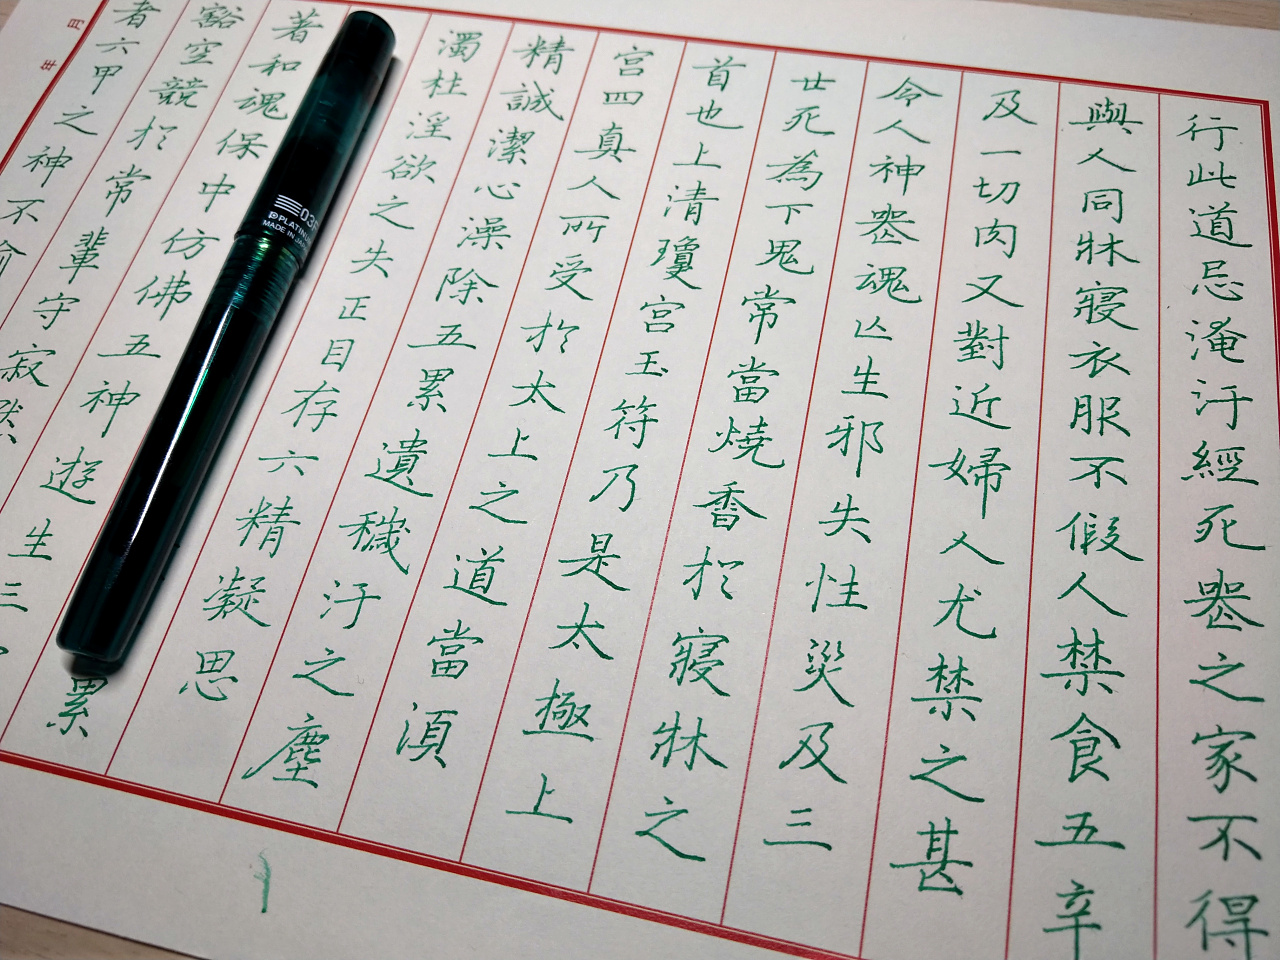 行此道忌淹汙經死器之家不得
與人同牀寢衣服不假人禁食五辛
及一切肉又對近婦人尤禁之甚
令人神器魂亾生邪失性災及三
世死為下鬼常當燒香於寢牀之
首也上清瓊宮玉符乃是太極上
宮四真人所受於太上之道當須
精誠潔心澡除五累遺穢汙之塵
濁杜淫欲之失正目存六精凝思
著和魂保中仿佛五神遊生三
豁空競於常輩守寂
者六甲之神不
累
年 月
03
PLATINUM
MADE IN JAPAN